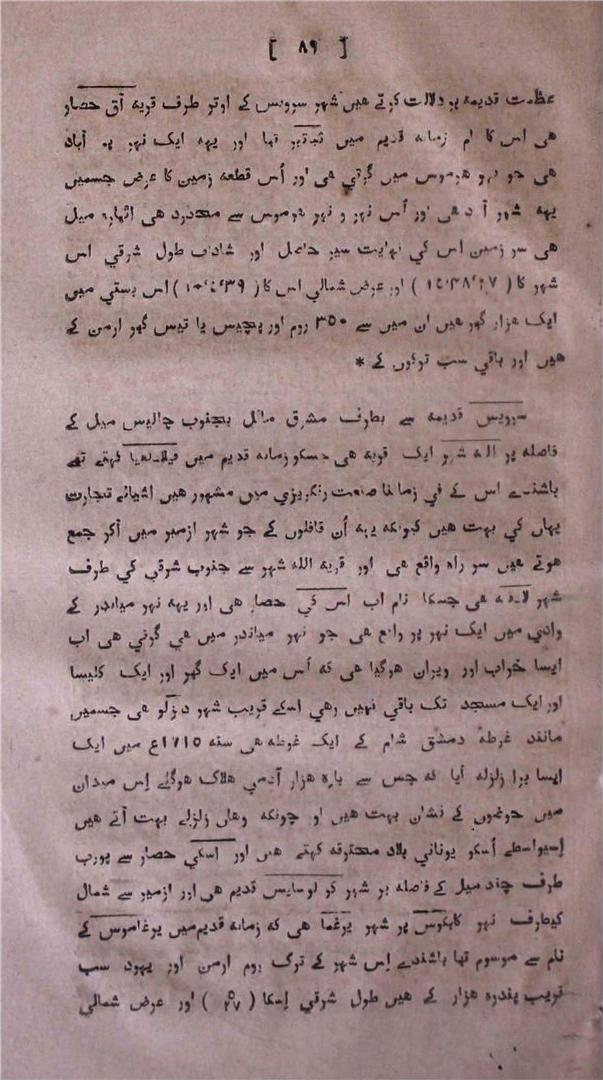 [ ۸۹ ]
عظمت قدیمہ پر دلالت کرتے هیں شہر سرویس کے اوتر طرف قریہ آق حصار
هی اس کا نام زمانہ قدیم میں تهاتیر تها اور یہہ ایک نہر پر آباد
هی جو نہر هرموس میں گرتي هی اور اُس قطعہ زمین کا عرض جسمیں
یہہ شہر آباد هی اور اُس نہر و نہر هرموس سے محدود هی اتهارہ میل
هی سر زمین اس کی نہایت سیر حاصل اور شاداب طول شرقي اس
شہر کا ( ) اور عرض شمالي اس کا ( ) اس بستي میں
ایک هزار گهر هیں ان میں سے ۳۵۰ روم اور پچیس یا تیس گهر ارمن کے
هیں اور باقي سب ترکوں کے *
سرویس قدیمہ سے بطرف مشرق مائل بجنوب چالیس میل کے
فاصلہ پر الہ شہر ایک قریہ هی جسکو زمانہ قدیم میں فیلادلفیا کہتے تهے
باشندے اس کے في زماننا صنعت رنگریزي میں مشہور هیں اشیائے تجارت
یہاں کي بہت هیں کیونکہ یہہ اُن قافلوں کے جو شہر ازمیر میں آکر جمع
هوتے هیں سر راہ واقع هی اور قریہ اللہ شہر سے جنوب شرقي کي طرف
شہر لاذقہ هی جسکا نام اب اس کي حصار هی اور یہہ نہر میاندر کے
وادي میں ایک نہر پر واقع هی جو نہر میاندر میں هي گرتي هی اب
ایسا خراب اور ویران هوگیا هی کہ اُس میں ایک گهر اور ایک کلیسا
اور ایک مسجد تک باقي نہیں رهي اسکے قریب شہر دزلو هی جسمیں
مانند غرطہ دمشق شام کے ایک غوطہ هی سنہ ۱۷۱۵ع میں ایک
ایسا بڑا زلزلہ آیا کہ جس سے بارہ هزار آدمي هلاک هوگئے اِس میدان
میں حوضوں کے نشان بہت هیں اور چونکہ وهاں زلزلے بہت آتے هیں
اِسیواسطے اُسکو یوناني بلاد محترقہ کہتے هیں اور اسکي حصار سے پورب
طرف چند میل کے فاصلہ پر شہر کولوسایس قدیم هی اور ازمیر سے شمال
کیطرف نہر کایکوس پر شہر یرغما هی کہ زمانہ قدیم میں یرغاموس کے
نام سے موسوم تها باشندے اِس شہر کے ترک روم ارمن اور یہود سب
قریب پندرہ هزار کے هیں طول شرقي اِسکا ( ) اور عرض شمالي